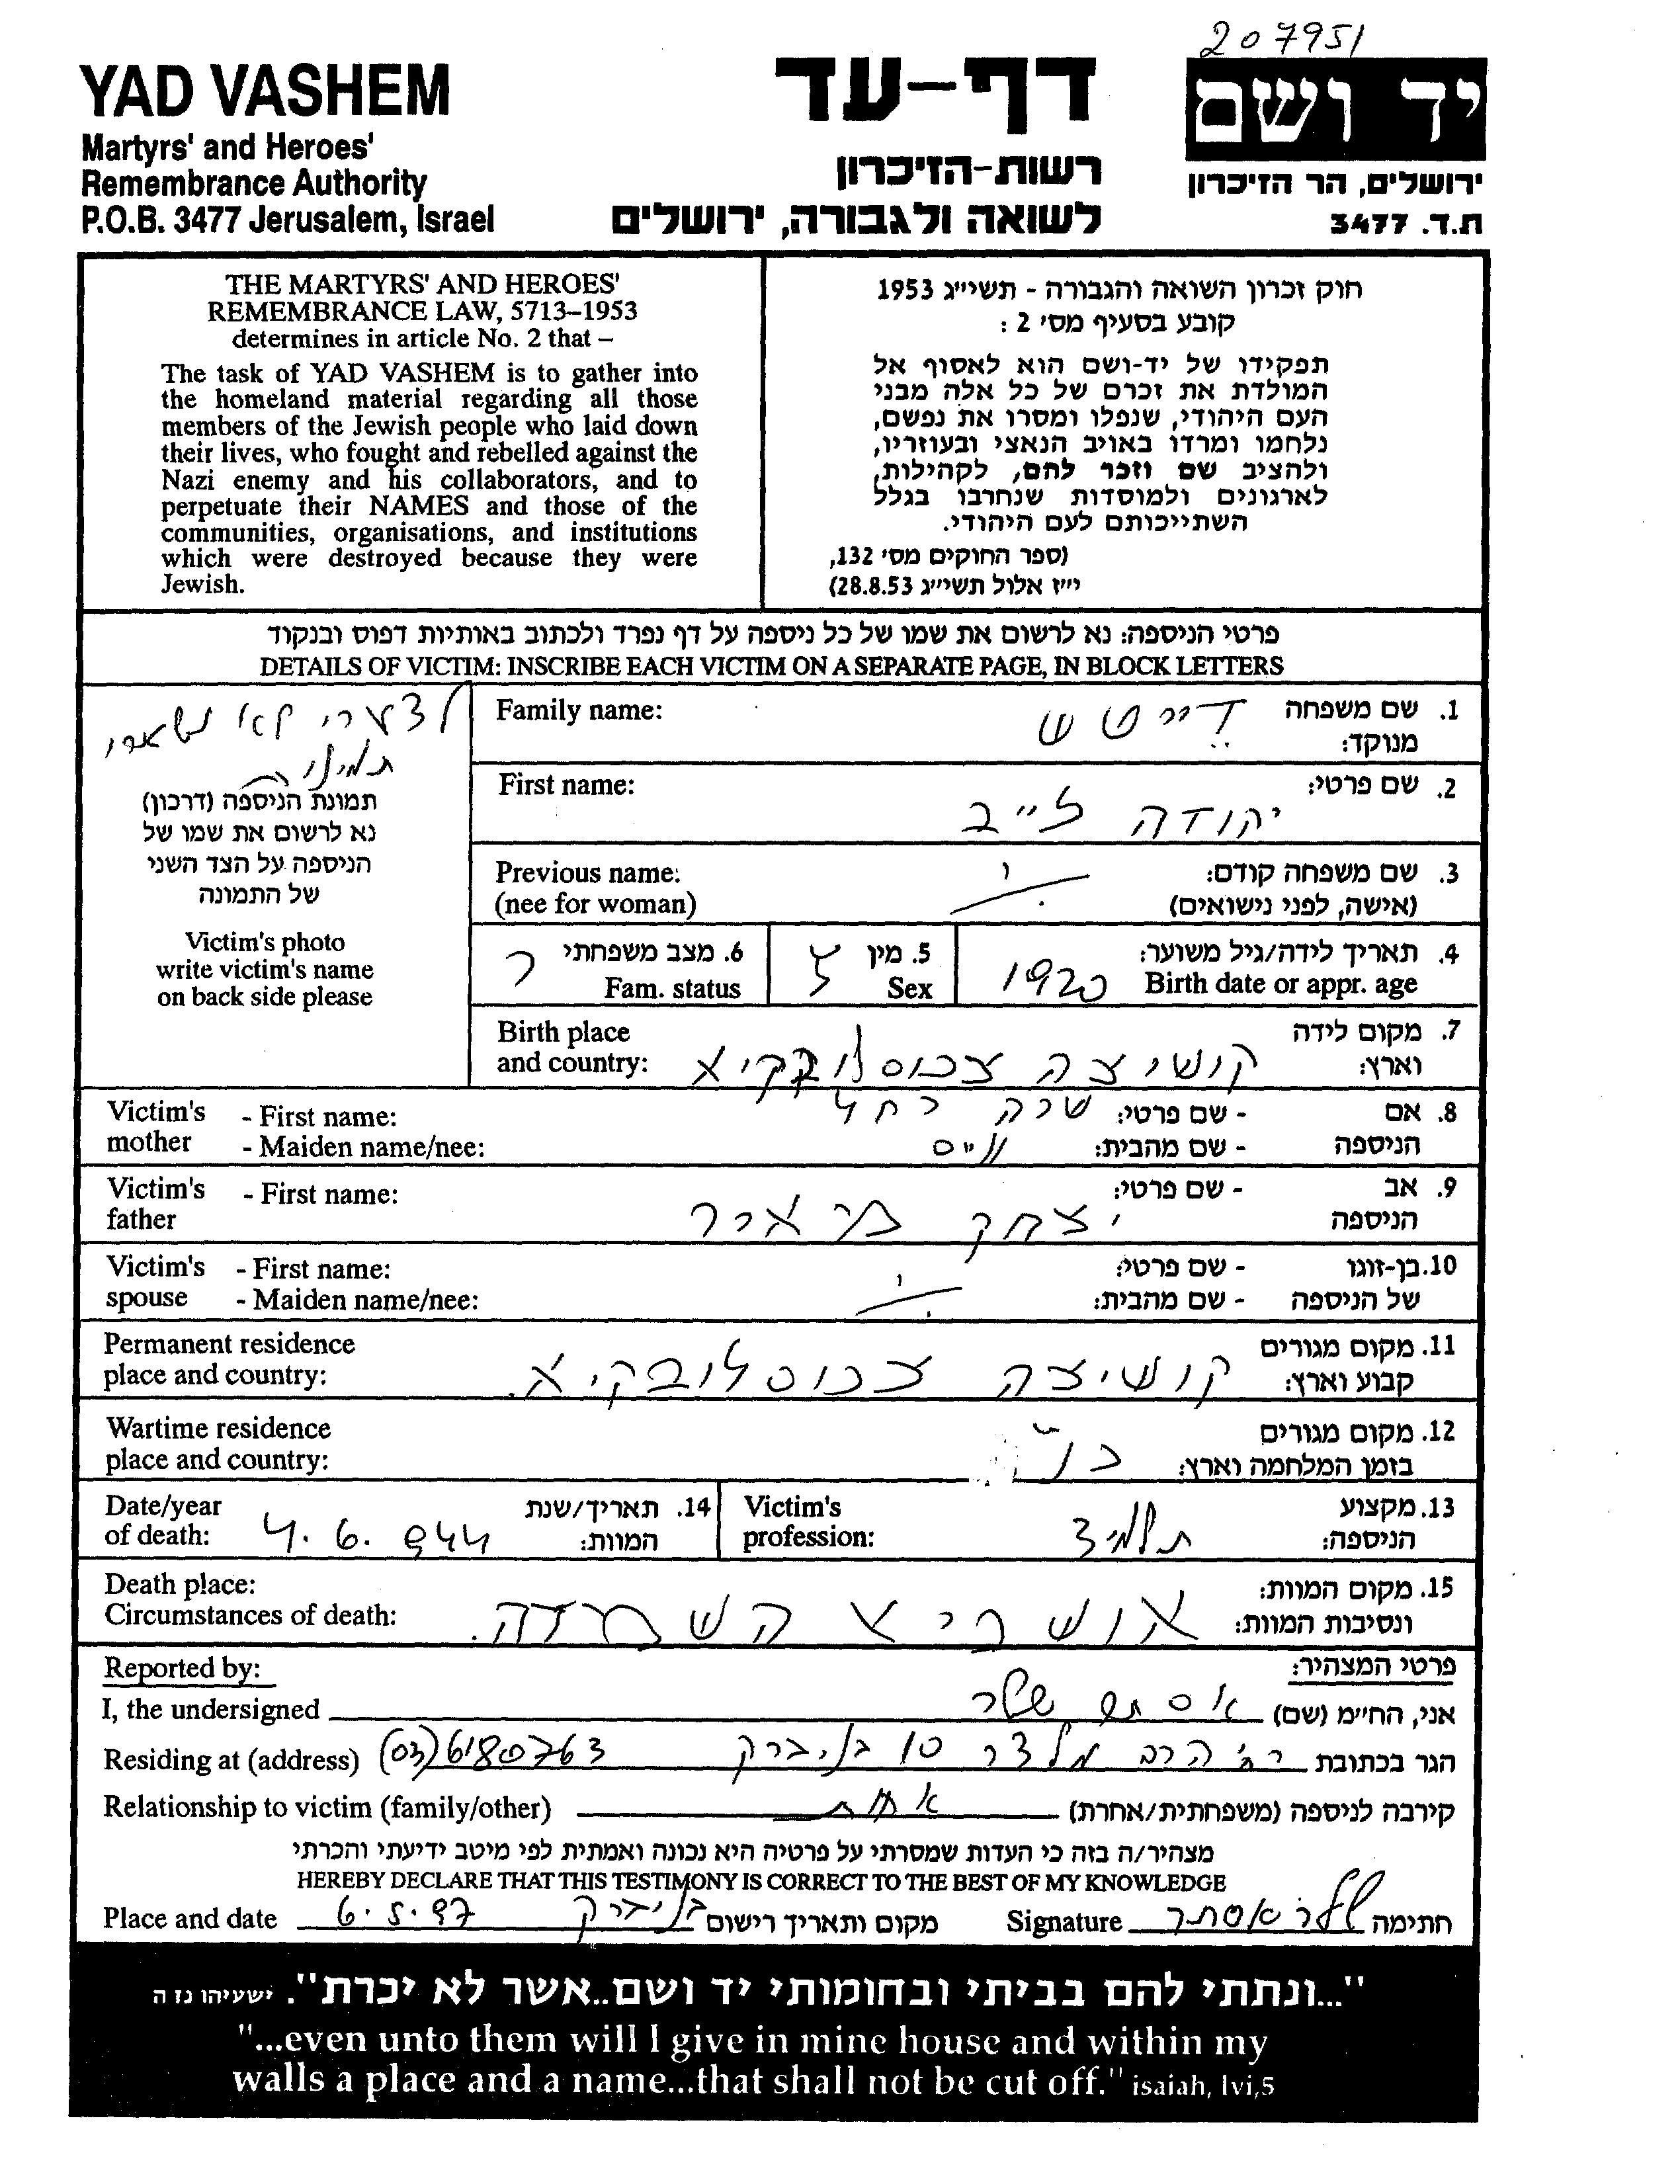 207951
YAD VASHEM
Martyrs' and Heroes'
Remembrance Authority
P.O.B. 3477 Jerusalem, Israel
דף-עד
רשות-הזיכרון
לשואה ולגבורה, ירושלים
יד ושם
ירושלים, הר הזיכרון
ת.ד. 3477
THE MARTYRS' AND HEROES'
REMEMBRANCE LAW, 5713–1953
determines in article No. 2 that –
The task of YAD VASHEM is to gather into
the homeland material regarding all those
members of the Jewish people who laid down
their lives, who fought and rebelled against the
Nazi enemy and his collaborators, and to
perpetuate their NAMES and those of the
communities, organisations, and institutions
which were destroyed because they were
Jewish.
חוק זכרון השואה והגבורה - תשי״ג 1953
קובע בסעיף מס׳ 2 :
תפקידו של יד-ושם הוא לאסוף אל
המולדת את זכרם של כל אלה מבני
העם היהודי, שנפלו ומסרו את נפשם,
נלחמו ומרדו באויב הנאצי ובעוזריו,
ולהציב שם וזכר להם, לקהילות,
לארגונים ולמוסדות שנחרבו בגלל
השתייכותם לעם היהודי.
(ספר החוקים מס׳ 132,
י״ז אלול תשי״ג 28.8.53)
פרטי הניספה: נא לרשום את שמו של כל ניספה על דף נפרד ולכתוב באותיות דפוס ובנקוד
DETAILS OF VICTIM: INSCRIBE EACH VICTIM ON A SEPARATE PAGE, IN BLOCK LETTERS
לצערי לא נשארו
תמונת הניספה (דרכון)
נא לרשום את שמו של
הניספה על הצד השני
של התמונה
Victim's photo
write victim's name
on back side please
1. שם משפחה דייטש Family name:
מנוקד:
2. שם פרטי: יהודה לייב First name:
3. שם משפחה קודם: Previous name:
(אישה, לפני נישואים) (nee for woman)
4. תאריך לידה/גיל משוער: 5. מין ז 6. מצב משפחתי ר
Birth date or appr. age 1920 Sex Fam. status
7. מקום לידה Birth place
וארץ: קושיצה צכוסלובקיא and country:
8. אם - שם פרטי: שרה רחל Victim's - First name:
הניספה - שם מהבית: ווייס mother - Maiden name/nee:
9. אב - שם פרטי: Victim's - First name:
הניספה יצחק מאיר father
10. בן-זוגו - שם פרטי: Victim's - First name:
של הניספה - שם מהבית: spouse - Maiden name/nee:
11. מקום מגורים Permanent residence
קבוע וארץ: קושיצה צכוסלובקיא. place and country:
12. מקום מגורים Wartime residence
בזמן המלחמה וארץ: כנ״ל place and country:
13. מקצוע Victim's 14. תאריך/שנת Date/year
הניספה: תלמיד profession: המוות: 4.6.944 of death:
15. מקום המוות: Death place:
ונסיבות המוות: אושוויץ השמדה. Circumstances of death:
פרטי המצהיר: Reported by:
אני, החי״מ (שם) אסתר שלר I, the undersigned
הגר בכתובת רח׳ הרב מלצר 10 בני ברק (03)6180763 Residing at (address)
קירבה לניספה (משפחתית/אחרת) אחות Relationship to victim (family/other)
מצהיר/ה בזה כי העדות שמסרתי על פרטיה היא נכונה ואמתית לפי מיטב ידיעתי והכרתי
HEREBY DECLARE THAT THIS TESTIMONY IS CORRECT TO THE BEST OF MY KNOWLEDGE
חתימה שלר אסתר Signature מקום ותאריך רישום בני ברק 6.5.97 Place and date
"...ונתתי להם בביתי ובחומותי יד ושם..אשר לא יכרת". ישעיהו נז ה
"...even unto them will I give in mine house and within my
walls a place and a name...that shall not be cut off." isaiah, lvi,5